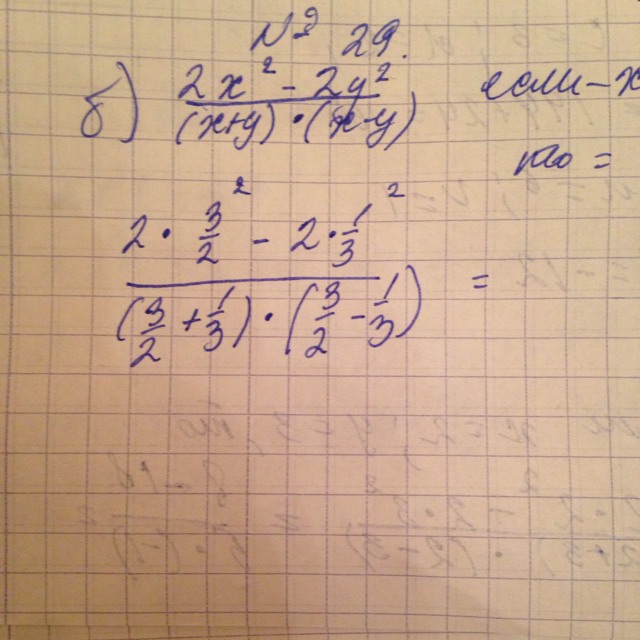 № 29.
б) (2x² - 2y²)/((x+y)·(x-y)) если - x
то =
(2·(3/2)² - 2·(1/3)²)/((3/2+1/3)·(3/2-1/3)) =